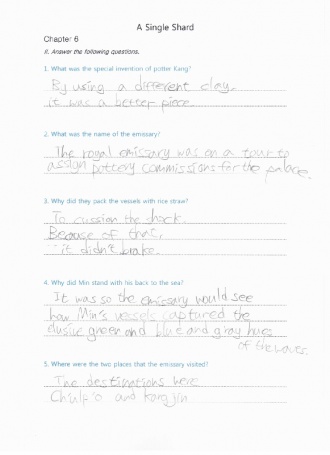 A Single Shard
Chapter 6
II. Answer the following questions.
1. What was the special invention of potter Kang?
By using a different clay.
it was a better piece.
2. What was the name of the emissary?
The royal emissary was on a tour to
assign pottery commissions for the palace.
3. Why did they pack the vessels with rice straw?
To cussion the shock.
Because of that,
it didn't brake.
4. Why did Min stand with his back to the sea?
It was so the emissary would see
how Min's vessels captured the
elusive green and blue and gray hues
of the waves.
5. Where were the two places that the emissary visited?
The destinations were
Chulp'o and Kangjin